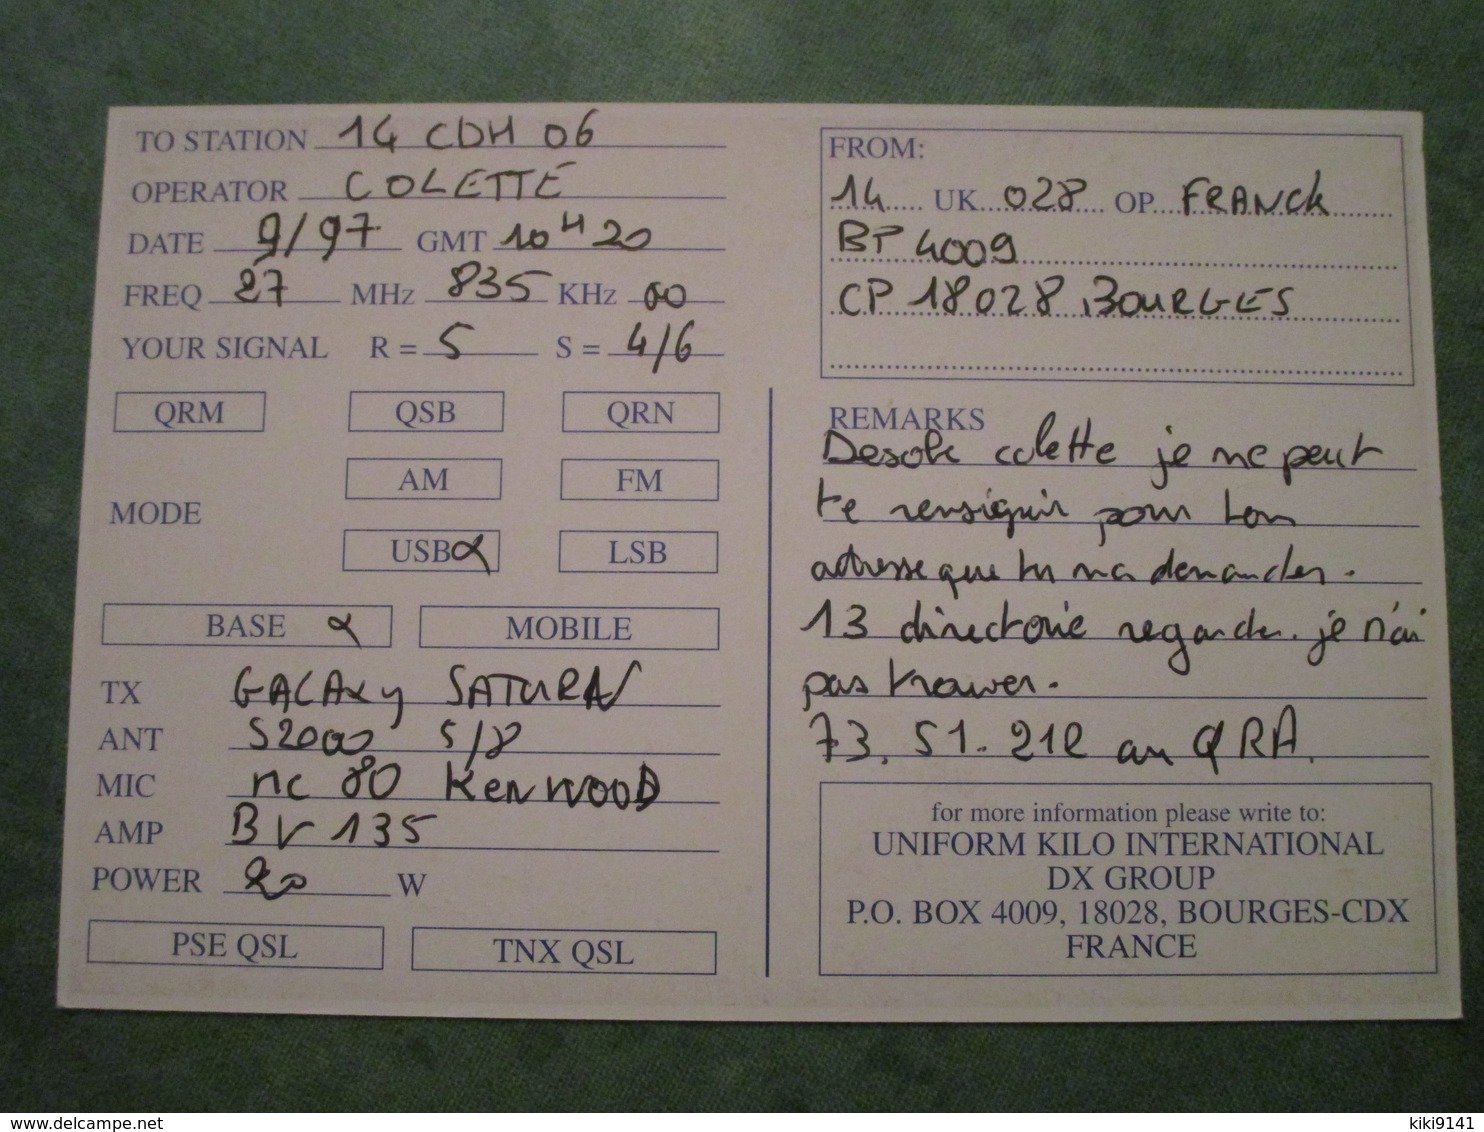 TO STATION 14 CDH 06
OPERATOR COLETTE
DATE 9/97 GMT 10H20
FREQ 27 MHz 835 KHz 00
YOUR SIGNAL R = 5 S = 4/6
QRM QSB QRN
AM FM
MODE
USB LSB
BASE MOBILE
TX GALAXY SATURN
ANT S2000 5/8
MIC MC 80 KENWOOD
AMP BV 135
POWER 20 W
PSE QSL TNX QSL
FROM:
14 UK 028 OP FRANCK
BP 4009
CP 18028 BOURGES
REMARKS
Desole colette je ne peut
te rensiegnir pour ton
adresse que tu ma demander.
13 directorie regarder. je n'ai
pas trouver.
73. 51. 212 au QRA.
for more information please write to:
UNIFORM KILO INTERNATIONAL
DX GROUP
P.O. BOX 4009, 18028, BOURGES-CDX
FRANCE
www.delcampe.net
kiki9141